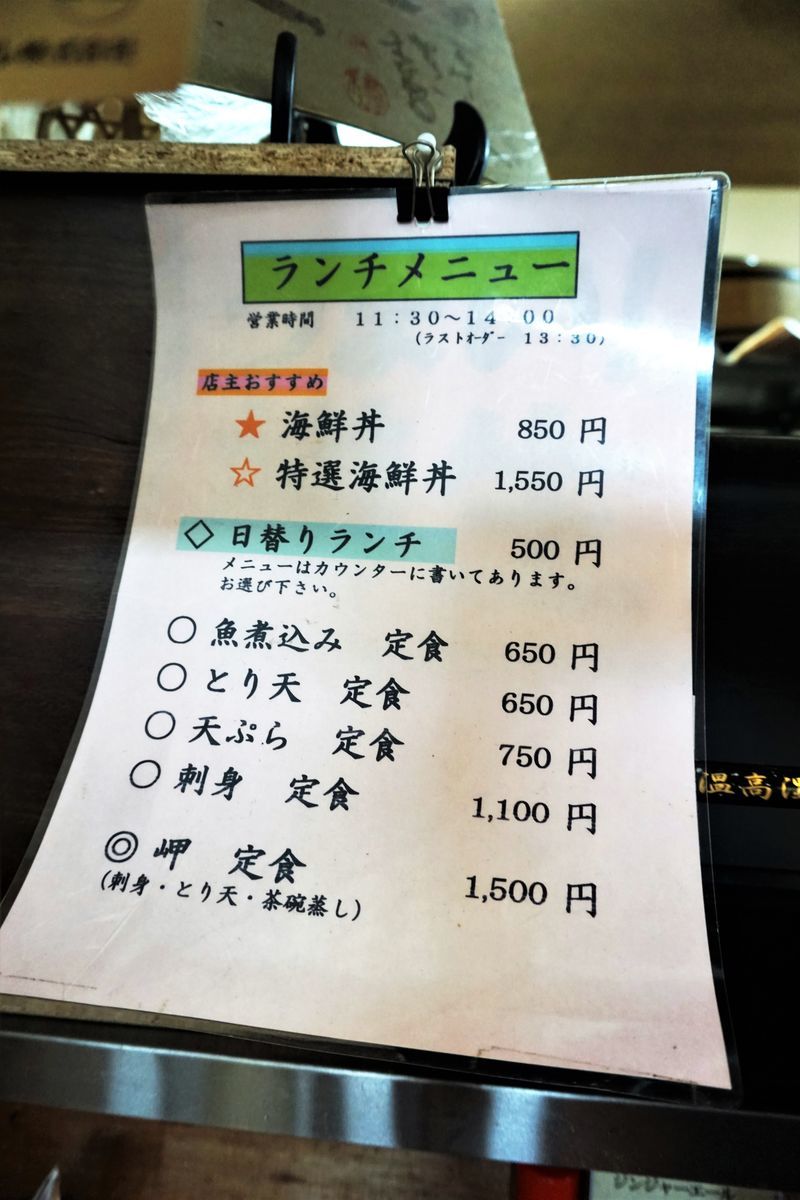 ランチメニュー
営業時間 11：30～14 00
（ラストオーダー 13：30）
店主おすすめ
★ 海鮮丼 850 円
☆ 特選海鮮丼 1,550 円
◇ 日替りランチ 500 円
メニューはカウンターに書いてあります。
お選び下さい。
○ 魚煮込み 定食 650 円
○ とり天 定食 650 円
○ 天ぷら 定食 750 円
○ 刺身 定食 1,100 円
◎ 岬 定食 1,500 円
（刺身・とり天・茶碗蒸し）
温高温